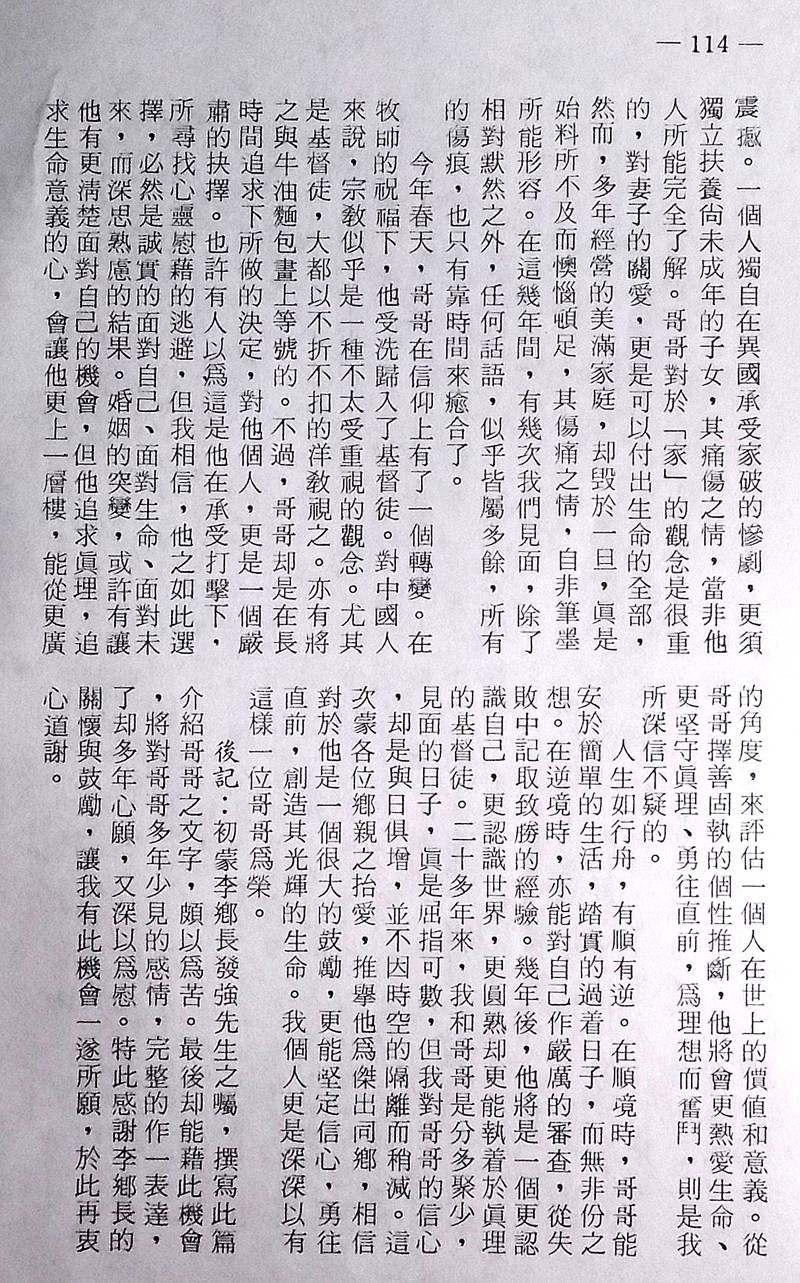 — 114 —
震撼。一個人獨自在異國承受家破的慘劇，更須
獨立扶養尚未成年的子女，其痛傷之情，當非他
人所能完全了解。哥哥對於「家」的觀念是很重
的，對妻子的關愛，更是可以付出生命的全部，
然而，多年經營的美滿家庭，却毀於一旦，眞是
始料所不及而懊惱頓足，其傷痛之情，自非筆墨
所能形容。在這幾年間，有幾次我們見面，除了
相對默然之外，任何話語，似乎皆屬多餘，所有
的傷痕，也只有靠時間來癒合了。
今年春天，哥哥在信仰上有了一個轉變。在
牧師的祝福下，他受洗歸入了基督徒。對中國人
來說，宗教似乎是一種不太受重視的觀念。尤其
是基督徒，大都以不折不扣的洋敎視之。亦有將
之與牛油麵包畫上等號的。不過，哥哥却是在長
時間追求下所做的決定，對他個人，更是一個嚴
肅的抉擇。也許有人以爲這是他在承受打擊下，
所尋找心靈慰藉的逃避，但我相信，他之如此選
擇，必然是誠實的面對自己、面對生命、面對未
來，而深思熟慮的結果。婚姻的突變，或許有讓
他有更淸楚面對自己的機會，但他追求眞理，追
求生命意義的心，會讓他更上一層樓，能從更廣
的角度，來評估一個人在世上的價値和意義。從
哥哥擇善固執的個性推斷，他將會更熱愛生命、
更堅守眞理、勇往直前，爲理想而奮鬥，則是我
所深信不疑的。
人生如行舟，有順有逆。在順境時，哥哥能
安於簡單的生活，踏實的過着日子，而無非份之
想。在逆境時，亦能對自己作嚴厲的審查，從失
敗中記取致勝的經驗。幾年後，他將是一個更認
識自己，更認識世界，更圓熟却更能執着於眞理
的基督徒。二十多年來，我和哥哥是分多聚少，
見面的日子，眞是屈指可數，但我對哥哥的信心
，却是與日俱增，並不因時空的隔離而稍減。這
次蒙各位鄉親之抬愛，推舉他爲傑出同鄉，相信
對於他是一個很大的鼓勵，更能堅定信心，勇往
直前，創造其光輝的生命。我個人更是深深以有
這樣一位哥哥爲榮。
後記：初蒙李鄉長發強先生之囑，撰寫此篇
介紹哥哥之文字，頗以爲苦。最後却能藉此機會
，將對哥哥多年少見的感情，完整的作一表達，
了却多年心願，又深以爲慰。特此感謝李鄉長的
關懷與鼓勵，讓我有此機會一遂所願，於此再衷
心道謝。